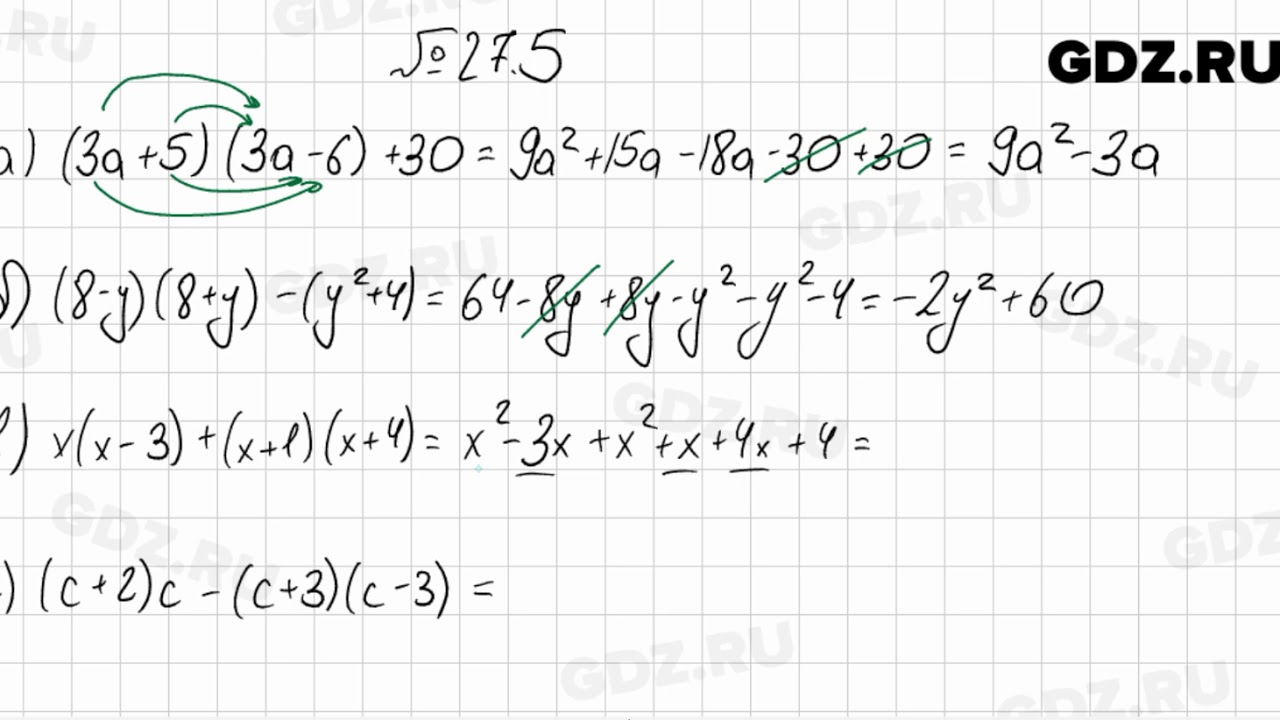 № 27.5
GDZ.RU
а) (3a + 5) (3a - 6) + 30 = 9a² + 15a - 18a - 30 + 30 = 9a² - 3a
б) (8 - y) (8 + y) - (y² + 4) = 64 - 8y + 8y - y² - y² - 4 = -2y² + 60
) x(x - 3) + (x + 1) (x + 4) = x² - 3x + x² + x + 4x + 4 =
) (c + 2)c - (c + 3)(c - 3) =